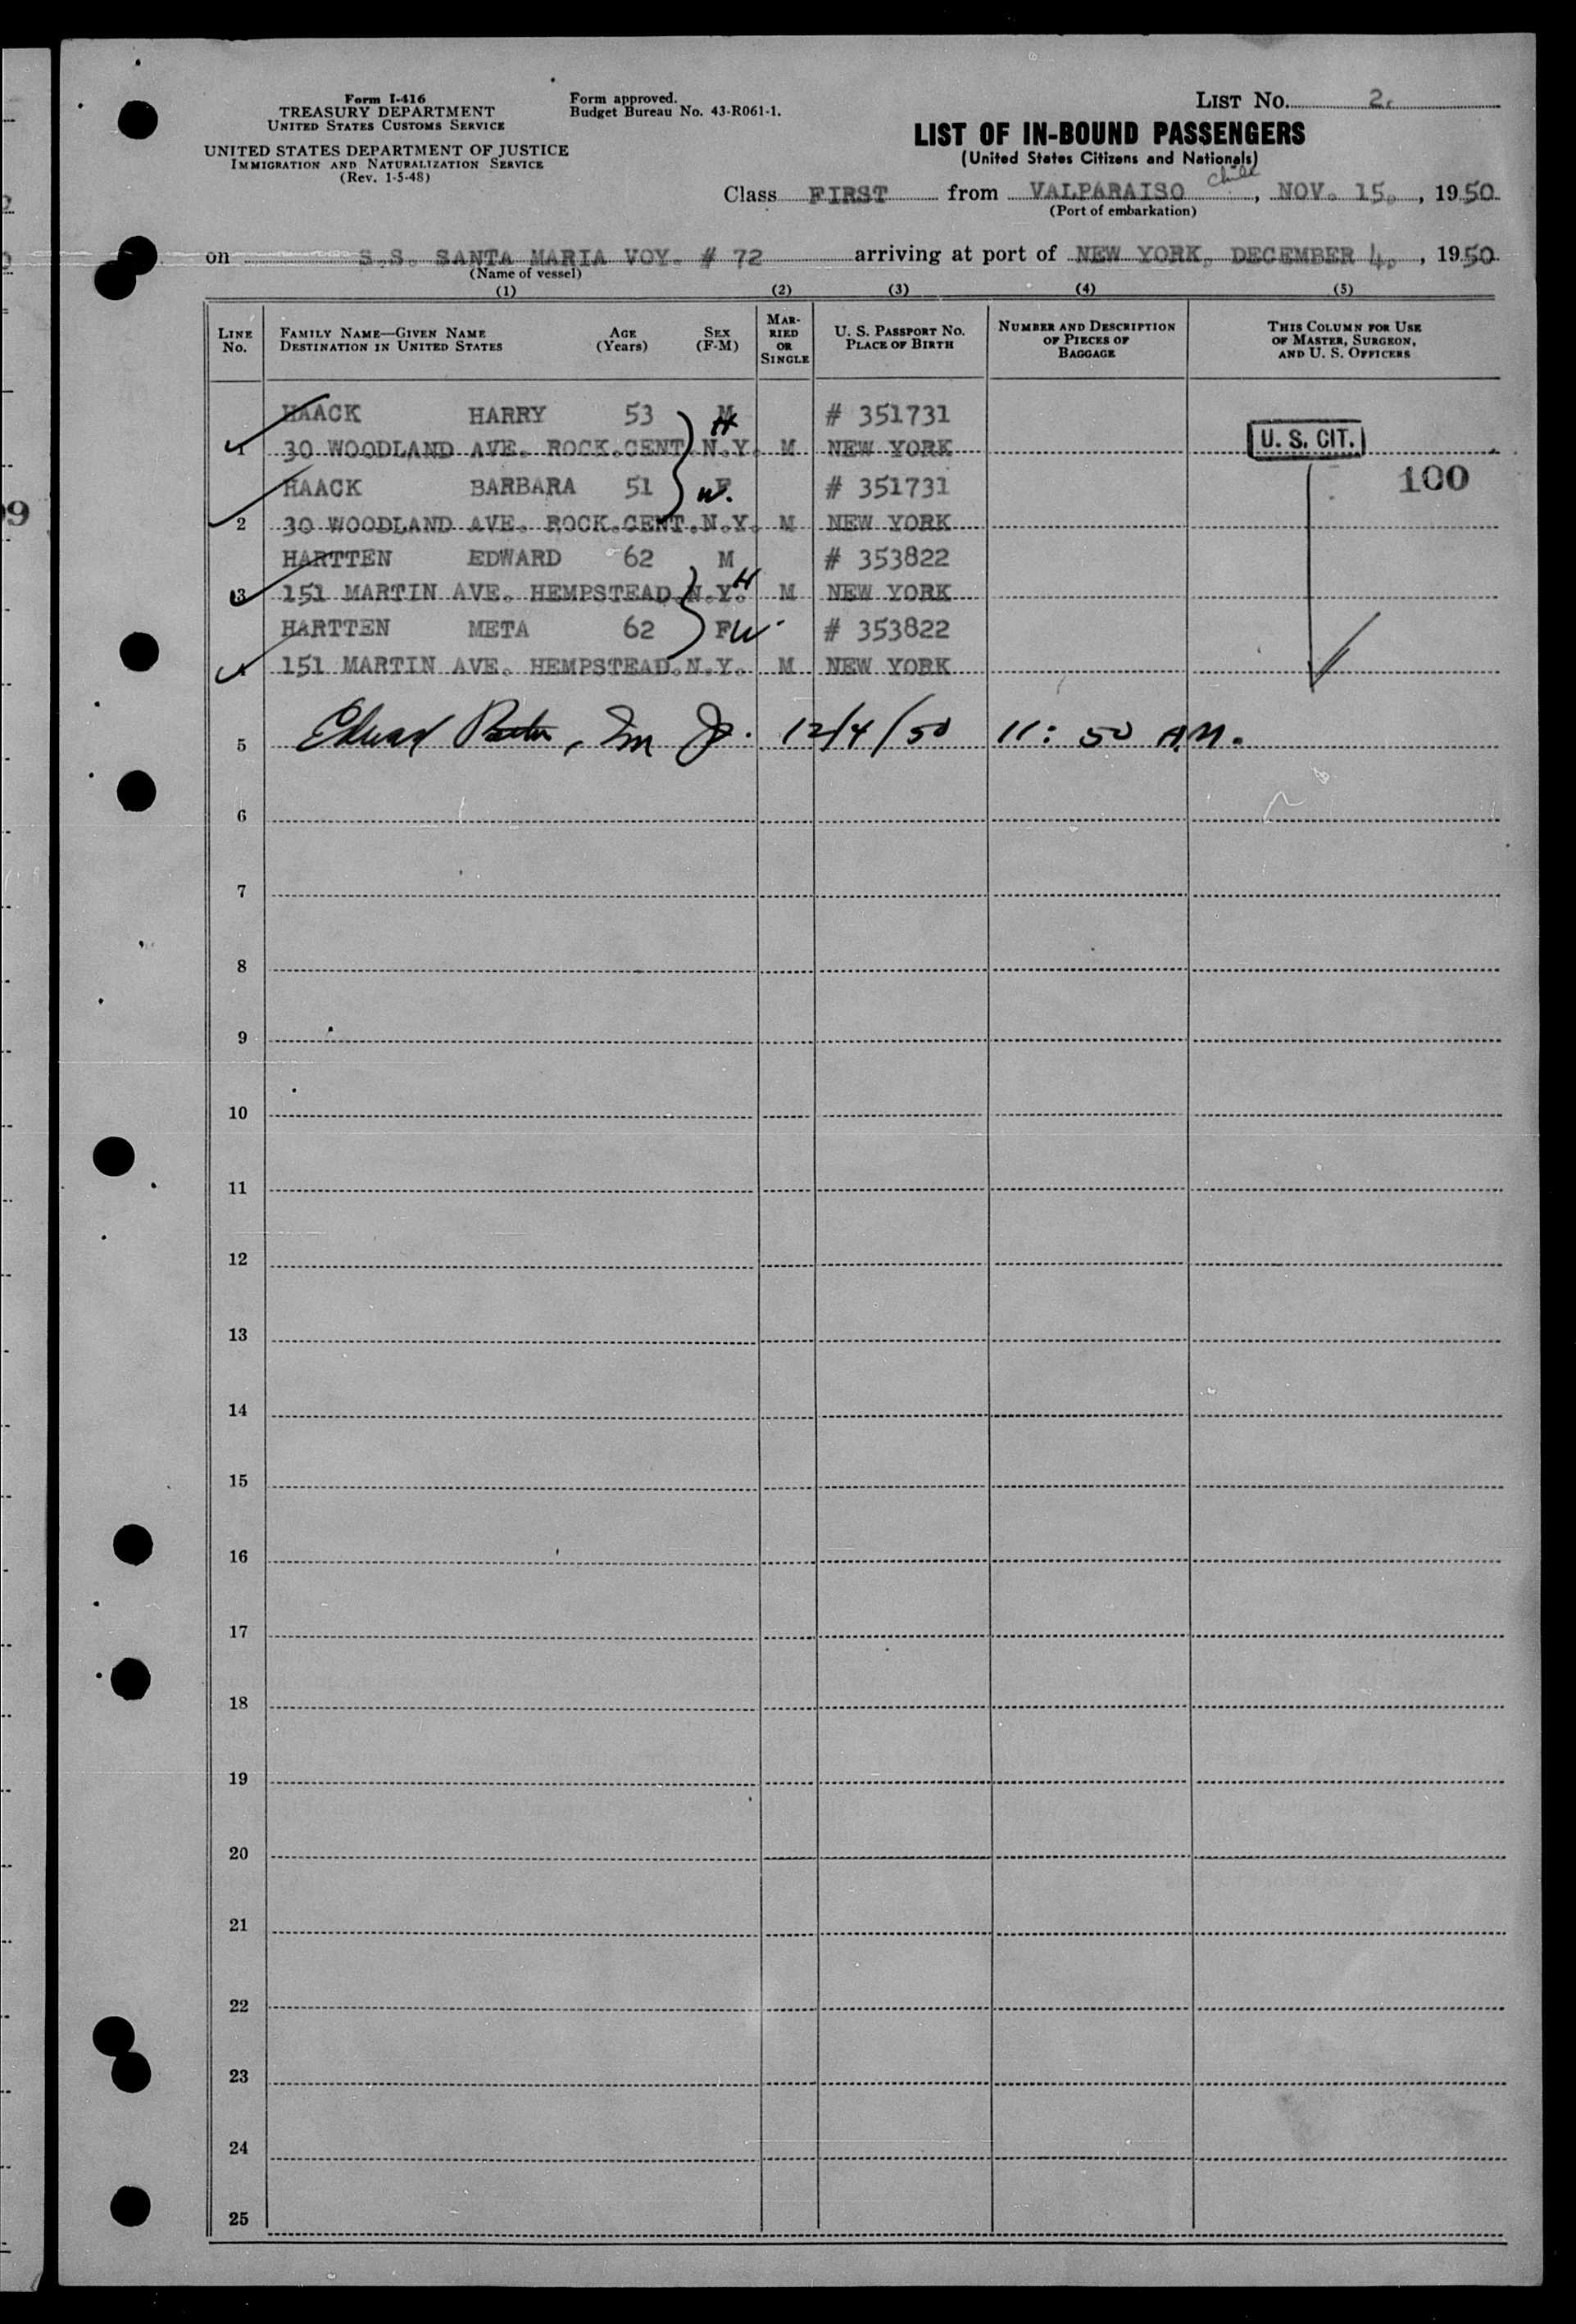 Form I-416
TREASURY DEPARTMENT
UNITED STATES CUSTOMS SERVICE
UNITED STATES DEPARTMENT OF JUSTICE
IMMIGRATION AND NATURALIZATION SERVICE
(Rev. 1-5-48)
Form approved.
Budget Bureau No. 43-R061-1.
LIST No. 2.
LIST OF IN-BOUND PASSENGERS
(United States Citizens and Nationals)
Class FIRST from VALPARAISO Chile, NOV. 15, 1950
(Port of embarkation)
on S.S. SANTA MARIA VOY. # 72 arriving at port of NEW YORK, DECEMBER 4, 1950
(Name of vessel)
(1) (2) (3) (4) (5)
LINE No.
FAMILY NAME—GIVEN NAME AGE (Years) SEX (F-M)
DESTINATION IN UNITED STATES
MARRIED OR SINGLE
U. S. PASSPORT No.
PLACE OF BIRTH
NUMBER AND DESCRIPTION OF PIECES OF BAGGAGE
THIS COLUMN FOR USE OF MASTER, SURGEON, AND U. S. OFFICERS
HAACK HARRY 53 M H # 351731
1 30 WOODLAND AVE. ROCK.CENT.N.Y. M NEW YORK U. S. CIT.
HAACK BARBARA 51 F W. # 351731 100
2 30 WOODLAND AVE. ROCK.CENT.N.Y. M NEW YORK
HARTTEN EDWARD 62 M # 353822
3 151 MARTIN AVE. HEMPSTEAD.N.Y. H M NEW YORK
HARTTEN META 62 F W # 353822
4 151 MARTIN AVE. HEMPSTEAD.N.Y. M NEW YORK
5 12/4/50 11:50 A.M.
6
7
8
9
10
11
12
13
14
15
16
17
18
19
20
21
22
23
24
25